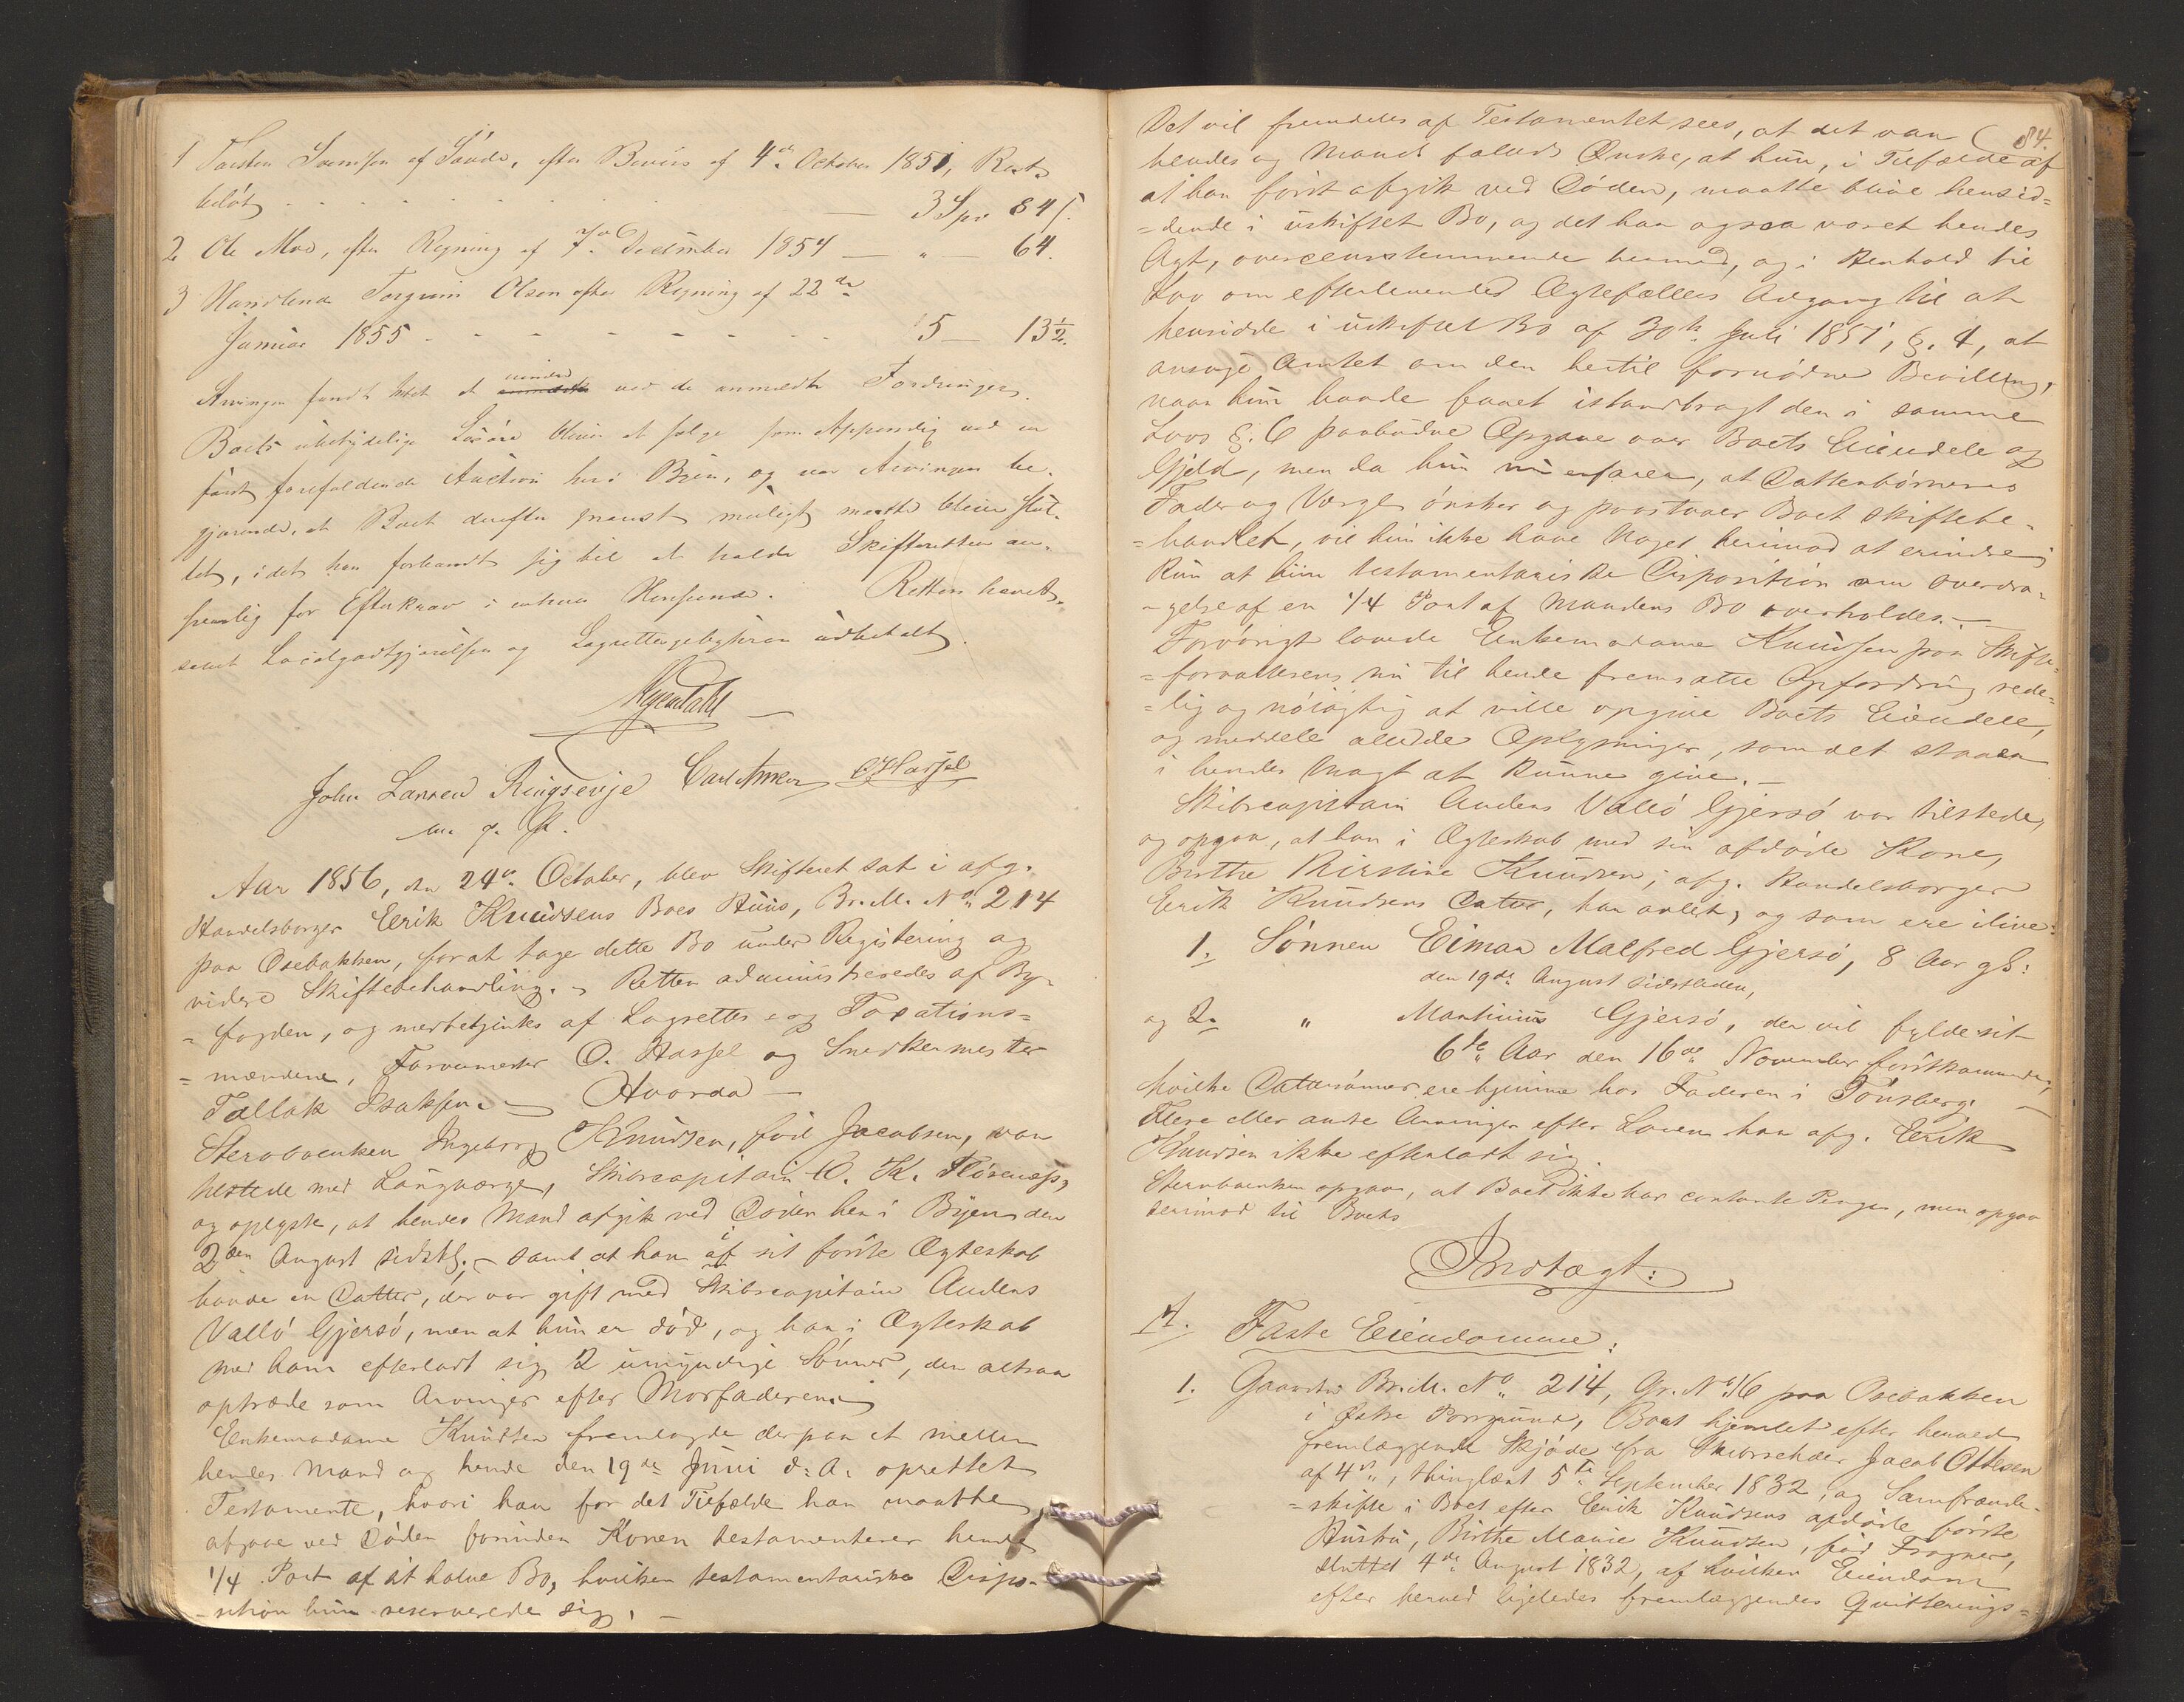 1 Torsten Svensen af Sande, efter Beviis af 4de October 1851, Rest-
beløb - - - - - - - - 3 Spd 84 s.
2 Ole Moe, efter Regning af 7de December 1854 — " — 64.
3 Handlende Torgrim Olsen efter Regning af 22de
Januar 1855 - - - - - - - 5 — 13½.
Arvingen fandt Intet at erindre ved de anmeldte Fordringer.
Boets ubetydelige Løsøre bliver at sælge som Appendix ved en
først forefaldende Auction her i Byen, og var Arvingen be-
gjærende, at Boet derefter snarest muligt maatte blive slut-
tet, idet han forbandt sig til at holde Skifteretten an-
svarlig for Efterkrav i enhver Henseende. Retten hævet,
samt Localgodtgjørelsen og Lagrettesgebyhrer udbetalt.
John Larsen Ringsevje Carl Anker O Hassel
m. f. P.
Aar 1856, den 24de October, blev Skifteret sat i afg.
Handelsborger Eerik Knudsens Boes Huus, Br. M. No 214
paa Osebakken, for at tage dette Bo under Registering og
videre Skiftebehandling. – Retten administreredes af By-
=fogden, og medbetjentes af Lagrettes- og Taxations=
=mændene, Farvermester O. Hassel og Snedkermester
Tallak Isaksen – Hvorda –
Stervboenken Ingeborg Knudsen, fød Jacobsen, var
tilstede med Laugværge, Skibscapitain O. K. Flørenæs,
og oplyste, at hendes Mand afgik ved Døden her i Byen den
2den August sidstl. – samt at han af sit første Ægteskab
havde en Datter, der var gift med Skibscapitain Anders
Vallø Gjersø, men at hun er død, og har i Ægteskab
med ham efterladt sig 2 umyndige Sønner, der altsaa
optræde som Arvinger efter Morfaderen.
Enkemadame Knudsen fremlagde derpaa et mellem
hendes Mand og hende den 19de Juni d: A: oprettet
Testamente, hvori han for det Tilfælde han maatte
afgaae ved Døden forinden Konen testamenterer hende
1/4 Part af sit halve Bo, hvilken testamentariske Dispo-
-sition hun reserverede sig. –
84.
Det vil fremdeles af Testamentet sees, at det var
hendes og Mands fælleds Ønske, at hun, i Tilfælde af
at han først afgik ved Døden, maatte blive hensid=
=dende i uskiftet Bo, og det har ogsaa været hendes
Agt, overeensstemmende hermed, og i Henhold til
Lov om efterlevendes Ægtefælles Adgang til at
hensidde i uskiftet Bo af 30te Juli 1851, §. 4, at
ansøge Amtet om den hertil fornødne Bevilling,
naar hun havde faaet istandbragt den i samme
Lovs §. 6 paabudne Opgave over Boets Eiendele og
Gjeld, men da hun nu erfarer, at Datterbørnenes
Fader og Værge ønsker og paastaaer Boet skiftebe-
=handlet, vil hun ikke have Noget herimod at erindre,
kun at hiin testamentariske Disposition om Overdra-
-gelse af en 1/4 Part af Mandens Bo overholdes. –
Forøvrigt lovede Enkemadame Knudsen paa Skifte-
=forvalterens nu til hende fremsatte Opfordring rede-
=lig og nøiagtig at ville opgive Boets Eiendele,
og meddele alle de Oplysninger, som det staaer
i hendes Magt at kunne give. –
Skibscapitain Anders Vallø Gjersø var tilstede,
og opgav, at han i Ægteskab med sin afdøde Kone,
Birthe Kirstine Knudsen, afg. Handelsborger
Erik Knudsens Datter, har avlet, og som ere ilive:
1. Sønnen Eimar Malfred Gjersø, 8 Aar gl:
den 19de August sidstleden,
og 2. " Marthinius Gjersø, der vil fylde sit
6te Aar den 16de November førstkommende,
hvilke Dattersønner ere hjemme hos Faderen i Tønsberg. –
Flere eller andre Arvinger efter Loven har afg. Eerik
Knudsen ikke efterladt sig.
Stervboenken opgav, at Boet ikke har contante Penge, men opgav
derimod til Boets
Indtægt:
A. Faste Eiendomme:
1. Gaarden Br. M. No 214, Gr. No 16 paa Osebakken
i Østre Porsgrund, Boet hjemlet efter herved
fremlæggende Skjøde fra Skibsrheder Jacob Ottesen
af 4de, thinglæst 5te September 1832, og Samfrænde-
=skifte i Boet efter Eerik Knudsens afdøde første
Hustru, Birthe Marie Knudsen, fød Fragner,
sluttet 4de August 1832, af hvilken Eiendom
efter herved ligeledes fremlæggendes Qvitterings=